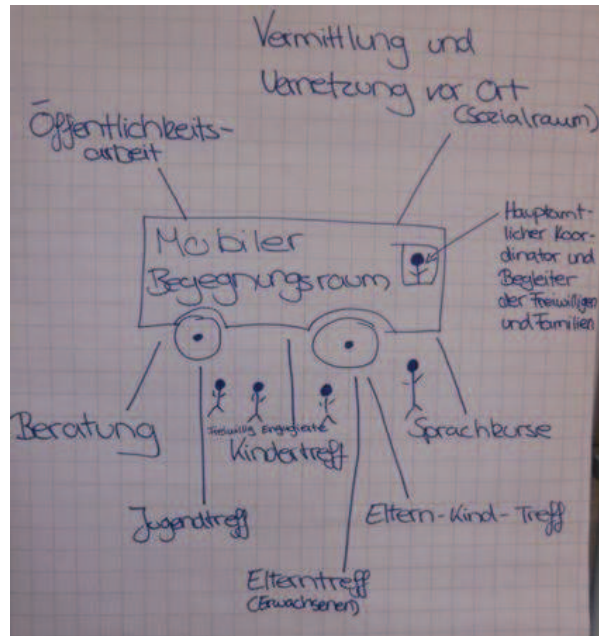 Vermittlung und
Vernetzung vor Ort
(Sozialraum)
Öffentlichkeits-
arbeit
Mobiler
Begegnungsraum
Hauptamt-
licher Koor-
dinator und
Begleiter
der Freiwilligen
und Familien
Beratung
Freiwillig Engagierte
Kindertreff
Sprachkurse
Jugendtreff
Eltern-Kind-Treff
Elterntreff
(Erwachsenen)